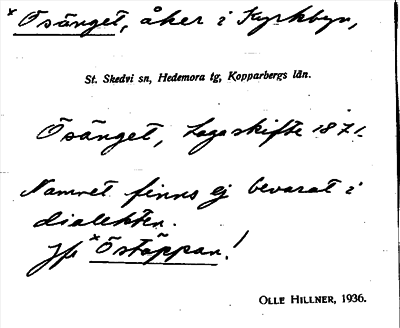 *Ösänget, åker i Kyrkbyn,
St. Skedvi sn, Hedemora tg, Kopparbergs län.
Ösänget, Lagaskifte 1871.
Namnet finns ej bevarat i
dialekten.
Jfr *Östäppan!
OLLE HILLNER, 1936.